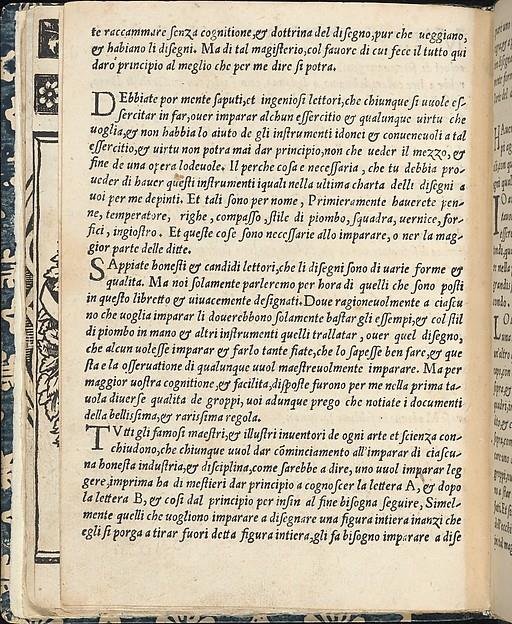 te raccammare senza cognitione,& dottrina del disegno,pur che ueggiano,
& habiano li disegni. Ma di tal magisterio,col fauore di cui fece il tutto qui
darò principio al meglio che per me dire si potra.
DEbbiate por mente saputi,et ingeniosi lettori,che chiunque si uuole es-
sercitar in far,ouer imparar alchun essercitio & qualunque uirtu che
uoglia,& non habbia lo aiuto de gli instrumenti idonei & conueneuoli a tal
essercitio,& uirtu non potra mai dar principio,non che ueder il mezzo, &
fine de una opera lodeuole. Il perche cosa e necessaria , che tu debbia pro-
ueder di hauer questi instrumenti iquali nella ultima charta delli disegni a
uoi per me depinti. Et tali sono per nome , Primieramente hauerete pen-
ne, temperatore, righe , compasso , stile di piombo, squadra, uernice, for-
fici , ingiostro . Et queste cose sono necessarie allo imparare, o ner la mag-
gior parte delle ditte.
SAppiate honesti & candidi lettori,che li disegni sono di uarie forme &
qualita. Ma noi solamente parleremo per hora di quelli che sono posti
in questo libretto & uiuacemente designati. Doue ragioneuolmente a ciascu
no che uoglia imparar li douerebbono solamente bastar gli essempi,& col stil
di piombo in mano & altri instrumenti quelli trallatar , ouer quel disegno,
che alcun uolesse imparar & farlo tante fiate,che lo sapesse ben fare,& que
sta e la osseruatione di qualunque uuol maestreuolmente imparare. Ma per
maggior uostra cognitione,& facilita,disposte furono per me nella prima ta-
uola diuerse qualita de groppi, uoi adunque prego che notiate i documenti
della bellissima,& rarissima regola.
TVtti gli famosi maestri,& illustri inuentori de ogni arte et scienza con-
chiudono,che chiunque uuol dar cõminciamento all'imparar di ciascu-
na honesta industria,& disciplina,come sarebbe a dire, uno uuol imparar leg
gere,imprima ha di mestieri dar principio a cognoscer la lettera A, & dopo
la lettera B, & cosi dal principio per insin al fine bisogna seguire, Simel-
mente quelli che uogliono imparare a disegnare una figura intiera inanzi che
egli si porga a tirar fuori detta figura intiera,gli fa bisogno imparare a dise